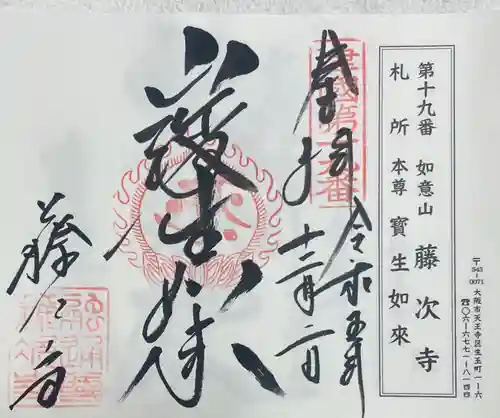 第十九番 如意山 藤次寺
札所 本尊 寶生如來
〒543-0071 大阪市天王寺区生玉町一ー六
☎〇六ー六七七一ー八一四四
奉拝 令和五年
十二月二日
寶生如来
藤次寺